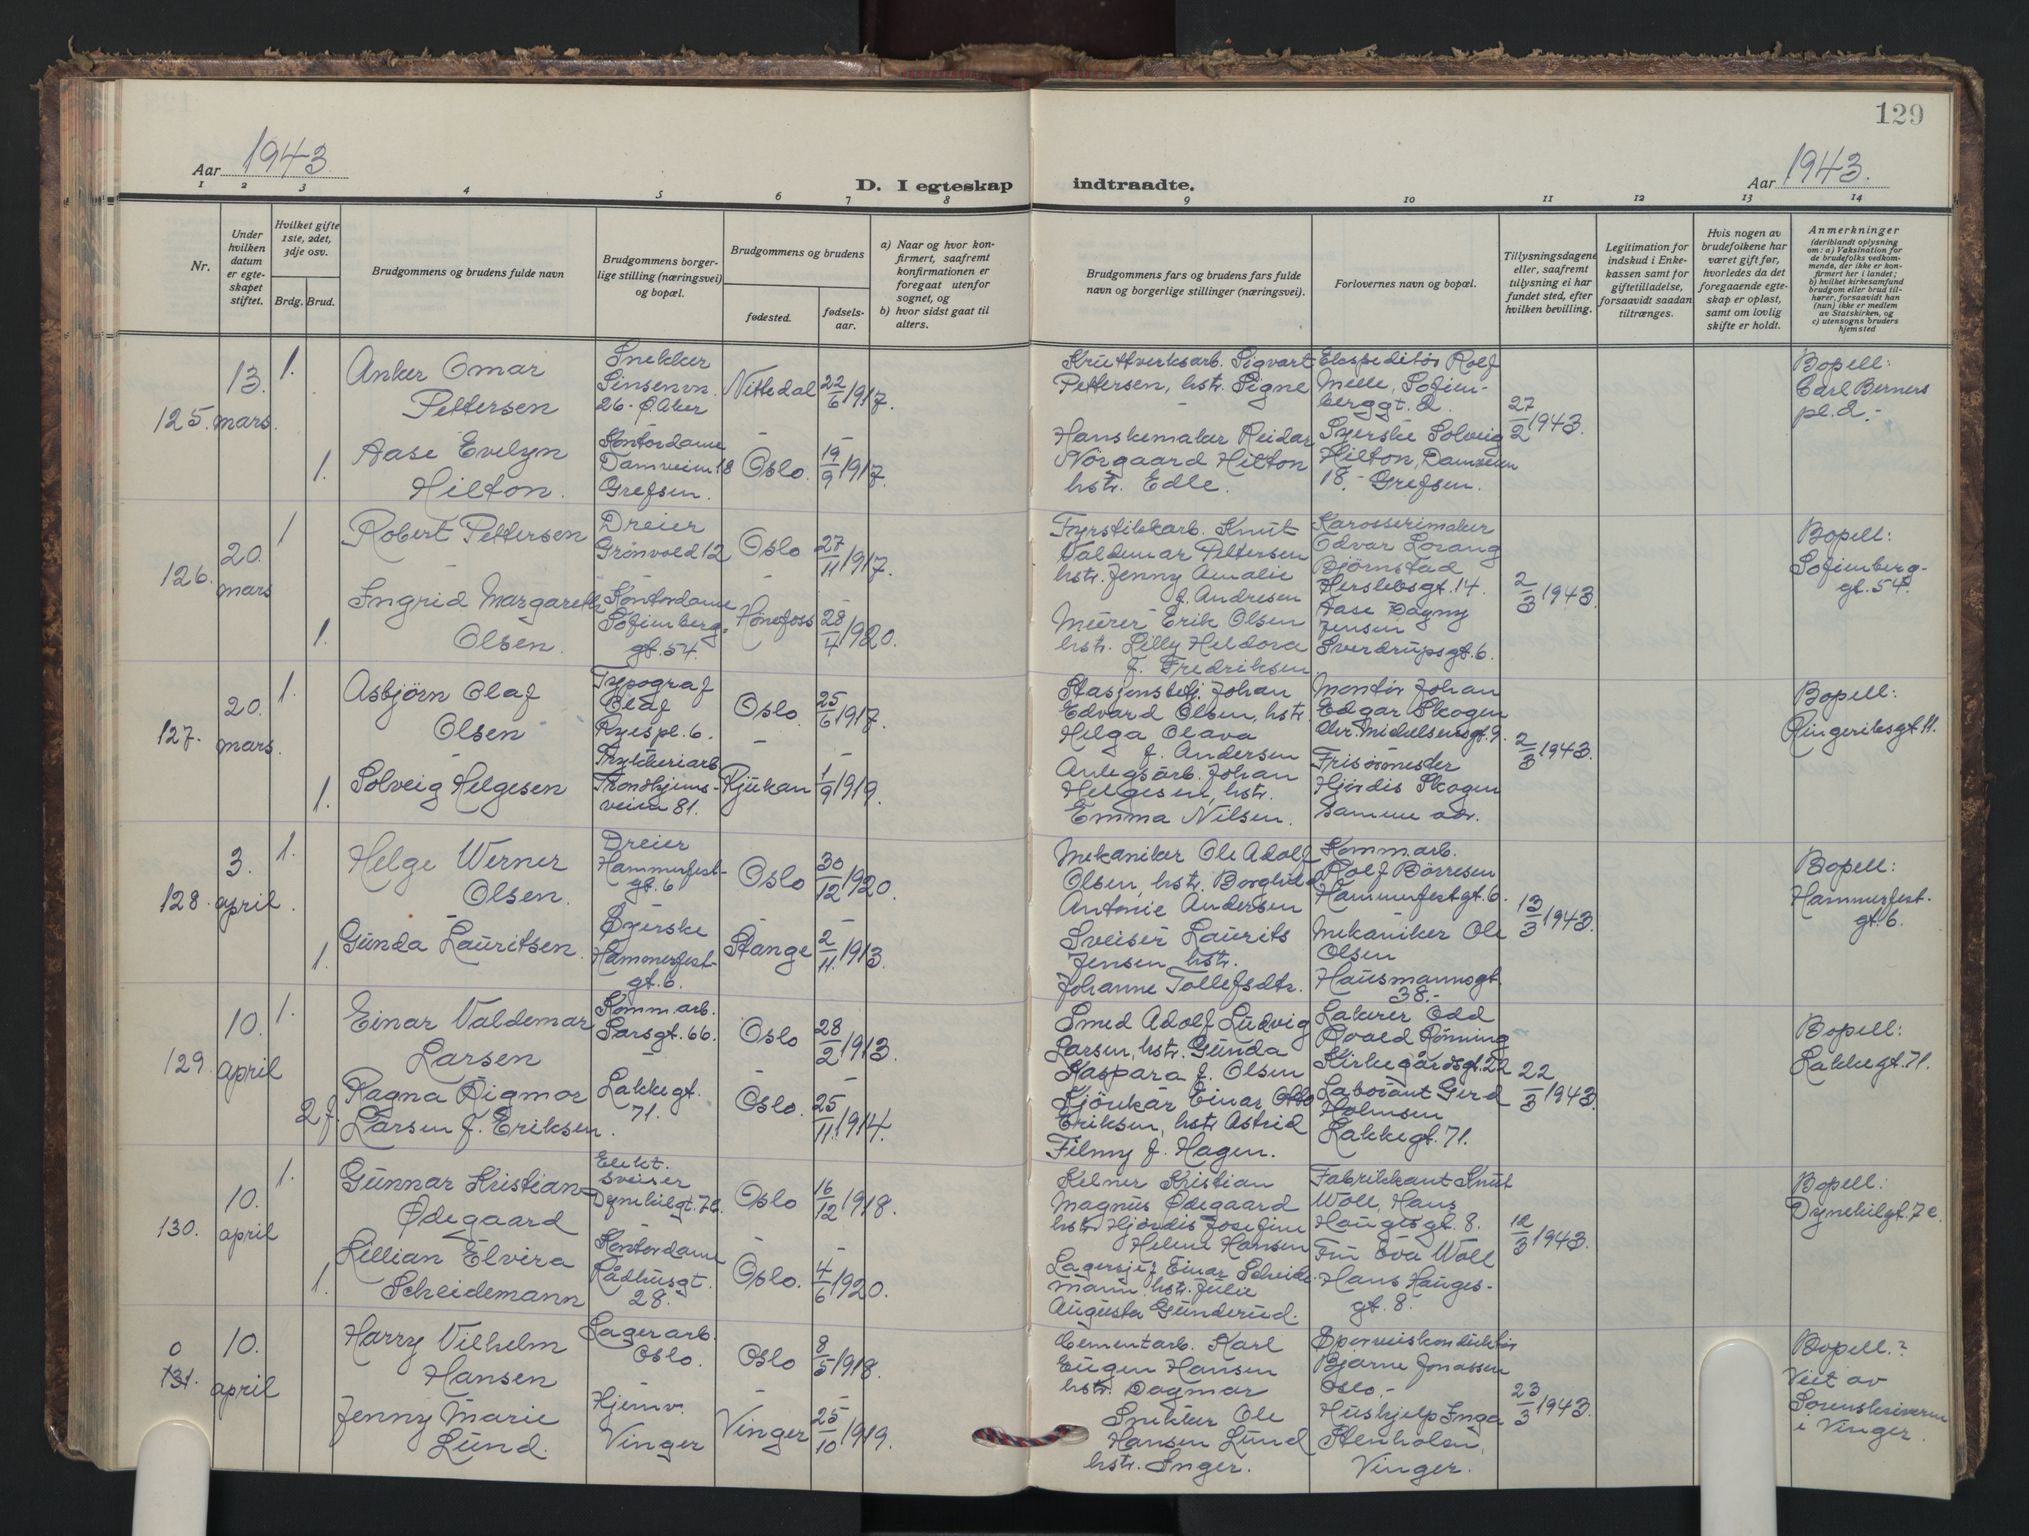 129
Aar 1943. D. I egteskap indtraadte. Aar 1943.
1 2 3 4 5 6 7 8 9 10 11 12 13 14
Nr.
Under hvilken datum er egteskapet stiftet.
Hvilket gifte 1ste, 2det, 3dje osv.
Brdg. Brud.
Brudgommens og brudens fulde navn
Brudgommens borgerlige stilling (næringsvei) og bopæl.
Brudgommens og brudens
fødested. fødselsaar.
a) Naar og hvor konfirmert, saafremt konfirmationen er foregaat utenfor sognet, og
b) hvor sidst gaat til alters.
Brudgommens fars og brudens fars fulde navn og borgerlige stillinger (næringsvei).
Forlovernes navn og bopæl.
Tillysningsdagene eller, saafremt tillysning ei har fundet sted, efter hvilken bevilling.
Legitimation for indskud i Enkekassen samt for giftetilladelse, forsaavidt saadan tiltrænges.
Hvis nogen av brudefolkene har været gift før, hvorledes da det foregaaende egteskap er opløst, samt om lovlig skifte er holdt.
Anmerkninger
(deriblandt oplysning om: a) Vaksination for de brudefolks vedkommende, der ikke er konfirmert her i landet; b) hvilket kirkesamfund brudgom eller brud tilhører, forsaavidt han (hun) ikke er medlem av Statskirken, og c) utensogns bruders hjemsted
125. 13. mars
1. Anker Omar Pettersen
Snekker Sinsenvn. 26 - Ø. Aker
Nittedal 22/6 1917.
1. Aase Evelyn Hilton.
Kontordame Damveien 18 Grefsen.
Oslo. 19/9 1917.
Kruttverksarb. Sigvart Pettersen, hstr. Signe
Hanskemaker Reidar Nörgaard Hilton hstr. Edle.
Ekspeditör Rolf Melle, Sofienberggt. 2.
Syerske Solveig Hilton, Damveien 18, - Grefsen.
27/2 1943.
Bopell: Carl Berners pl. 2.-
126. 20. mars
1 Robert Pettersen
Dreier Grönvold 12
Oslo 27/11 1917.
1. Ingrid Margareth Olsen.
Kontordame Sofienberggt. 54.
Hönefoss 28/4 1920.
Fyrstikkarb. Knut Valdemar Pettersen hstr. Jenny Amalie f. Andresen
Murer Erik Olsen hstr. Lilly Heldora f. Fredriksen
Karosserimaker Edvar Lorang Björnstad Herslebsgt. 14.
Aase Dagny Jensen Sverdrupsgt. 6.
2/3 1943.
Bopell: Sofienberggt. 54.
127. 20. mars.
1. Asbjörn Olaf Olsen
Typograf Olaf Ryes pl. 6.
Oslo. 25/6 1917.
1. Solveig Helgesen
Trykkeriarb Trondhjemsveien 81.
Rjukan 1/9 1919.
Stasjonsbetj. Johan Edvard Olsen, hstr. Helga Olava f. Andersen
Anlegsarb. Johan Helgesen, hstr. Emma Nilsen.
Montör Johan Edgar Skogen Chr. Mickelsensgt. 9.
Frisörmester Hjördis Skogen samme adr.
2/3 1943.
Bopell: Ringeriksgt 11.
128. 3. april.
1. Helge Werner Olsen.
Dreier Hammerfestgt. 6
Oslo 30/12 1920.
1. Gunda Lauritsen.
Syerske Hammerfestgt. 6.
Stange 2/11. 1913.
Mekaniker Ole Adolf Olsen, hstr. Borghild Antonie Andersen
Sveiser Laurits Jensen hstr. Johanne Tollefsdtr.
Komm.arb. Rolf Börresen Hammerfestgt. 6.
Mekaniker Ole Olsen Hausmannsgt. 38.-
13/3 1943.
Bopell: Hammerfestgt. 6.
129. 10. april
1. Einar Valdemar Larsen
Komm.arb. Sarsgt. 66.
Oslo 28/2 1913.
2 f. Ragna Digmor Larsen f. Eriksen.
Lakkegt. 71.
Oslo. 25/11. 1914.
Smed Adolf Ludvig Larsen, hstr. Gunda Kaspara f. Olsen
Kjönkar Einar Otto Eriksen, hstr. Astrid Filmy f. Hagen.
Lakerer Odd Rönning Kirkegårdsgt. 22
Laborant Gerd Holmsen Lakkegt. 71.
22/3 1943.
Bopell: Lakkegt. 71.
130. 10. april
1. Gunnar Kristian Ödegaard
Elekt. sveiser Dynekilgt. 7c.
Oslo 16/12 1918.
1. Lillian Elvira Scheidemann
Kontordame Rådhusgt. 28.
Oslo. 4/6 1920.
Kelner Kristian Magnus Ödegaard hstr. Hjördis Josefine Helene Hansen
Lagersjef Einar Scheidemann hstr. Julie Augusta Gunderud.
Fabrikkant Knut Woll, Hans Haugesgt. 8.
Fru Eva Woll Hans Haugesgt. 8.
12/3 1943.
Bopell: Dynekilgt. 7c.
0 131. 10. april
Harry Vilhelm Hansen
Lagerarb. Oslo.
Oslo 8/5 1918.
Jenny Marie Lund.
Hjemv. Vinger
Vinger 25/10 1919.
Cementarb. Karl Eugen Hansen hstr. Dagmar
Snekker Ole Hansen Lund hstr. Inger.
Sporveiskonduktör Bjarne Jonassen Oslo.-
Hushjelp Inga Stenholen, Vinger.
23/3 1943.
Bopell.? Viet av Sorenskriveren i Vinger.